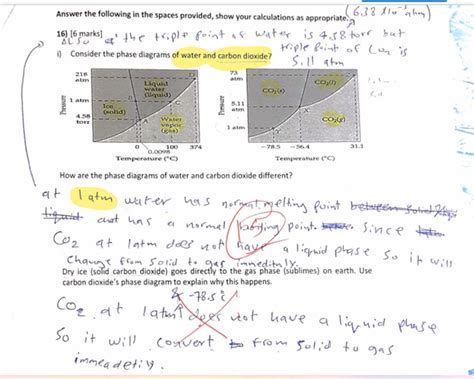 Answer the following in the spaces provided, show your calculations as appropriate. (6.38 x10⁻³ atm)
16) [6 marks]
ALSO the triple point of water is 4.58 torr but
triple Point of CO2 is
5.11 atm
i) Consider the phase diagrams of water and carbon dioxide?
218
atm
1 atm
4.58
torr
Pressure
Ice
(solid)
Liquid
water
(liquid)
Water
vapor
(gas)
A
C
D
0
0.0098
100
374
Temperature (°C)
73
atm
5.11
atm
1 atm
Pressure
CO₂(s)
CO₂(l)
CO₂(g)
X
-78.5
-56.4
31.1
Temperature (°C)
How are the phase diagrams of water and carbon dioxide different?
at 1 atm water has normal melting point between solid
liquid and has a normal point. Since
CO2 at 1atm does not have a liquid phase so it will
change from solid to gas
Dry ice (solid carbon dioxide) goes directly to the gas phase (sublimes) on earth. Use
carbon dioxide's phase diagram to explain why this happens.
& -78.5 c
CO2 at 1atm does not have a liquid phase
So it will convert from solid to gas
immeadetly.